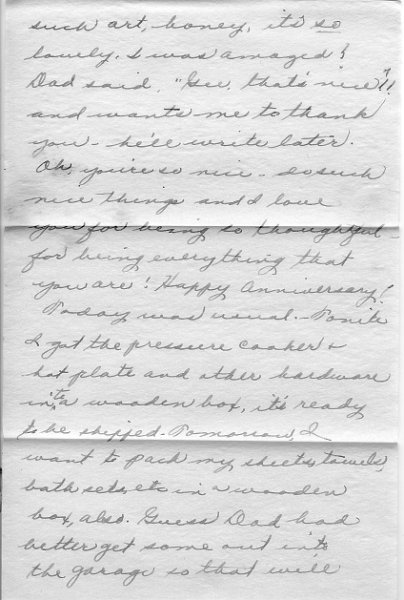 such art, honey, it's so
lovely. I was amazed!
Dad said, "Gee, that's nice"!!
and wants me to thank
you - he'll write later.
Oh, you're so nice - do such
nice things and I love
you for being so thoughtful -
for being everything that
you are! Happy Anniversary!
Today was usual. - Tonite
I got the pressure cooker +
hot plate and other hardware
into a wooden box, it's ready
to be shipped. Tomorrow, I
want to pack my sheets, towels,
bath sets, etc in a wooden
box, also. Guess Dad had
better get some out into
the garage so that will